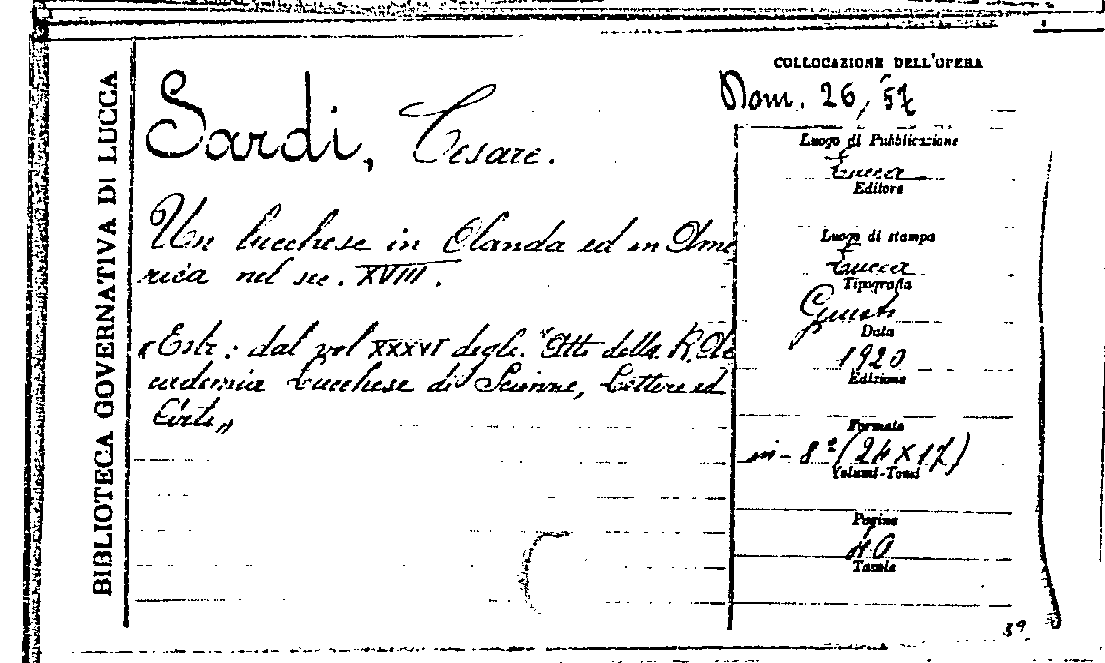 BIBLIOTECA GOVERNATIVA DI LUCCA
Sardi, Cesare.
Un lucchese in Olanda ed in Ame
rica nel sec. XVIII.
«Estr: dal vol XXXVI degli "Atti della R. Ac
cademia Lucchese di Scienze, Lettere ed
Arti»
COLLOCAZIONE DELL'OPERA
Dom. 26, 57
Luogo di Pubblicazione
Lucca
Editore
Luogo di stampa
Lucca
Tipografia
Giusti
Data
1920
Edizione
Formato
in-8° (24 x 17)
Volumi-Tomi
Pagine
40
Tavole